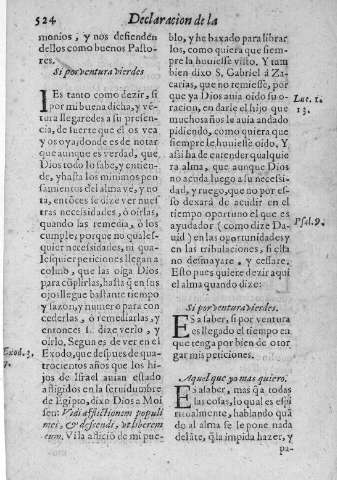 524 Declaracion de la
monios, y nos defienden
dellos como buenos Pasto-
res.
Si por ventura vierdes
IEs tanto como dezir, si
por mi buena dicha, y vē-
tura llegaredes a su presen-
cia, de suerte que el os vea
y os oya; donde es de notar
que aunque es verdad, que
Dios todo lo sabe, y entien-
de, y hasta los minimos pen-
samientos del alma ve, y no-
ta, entōces se dize ver nues-
tras necessidades, ó oirlas,
quando las remedia, ó las
cumple; porque no quales-
quier necessidades, ni qua-
lesquier peticiones llegan a
colmo, que las oiga Dios
para cūplirlas, hasta q̄ en sus
ojos llegue bastante tiempo
y sazon, y numero para con-
cederlas, ó remediarlas, y
entonces se dize verlo, y
oirlo. Segun es de ver en el
Exod. 3.
7.
Exodo, que despues de qua-
trocientos años que los hi-
jos de Israel auian estado
afligidos en la seruidumbre
de Egipto, dixo Dios a Moi
sen: Vidi afflictionem populi
mei, & descendi, vt liberem
eum. Vi la aflició de mi pue-
blo, y he baxado para librar
los, como quiera que siem-
pre la huuiesse visto. Y tam
bien dixo S. Gabriel á Za-
carias, que no temiesse, por
que ya Dios auia oido su o-
racion, en darle el hijo que
Luc. 1.
13.
muchos años le auia andado
pidiendo, como quiera que
siempre le huuiesse oido. Y
assi ha de entender qualquie
ra alma, que aunque Dios
no acuda luego a su necessi-
dad, y ruego, que no por es-
so dexará de acudir en el
tiempo oportuno el que es
ayudador (como dize Da-
uid) en las oportunidades y
Psal. 9.
en las tribulaciones, si ella
no desmayare, y cessare.
Esto pues quiere dezir aqui
el alma quando dize:
Si por ventura vierdes.
Es a saber, si por ventura
es llegado el tiempo en
que tenga por bien de otor
gar mis peticiones.
Aquel que yo mas quiero.
Es a saber, mas q̄ a todas
las cosas, lo qual es espi
ritualmente, hablando quā
do al alma se le pone nada
delāte, q̄ la impida hazer, y
pa-